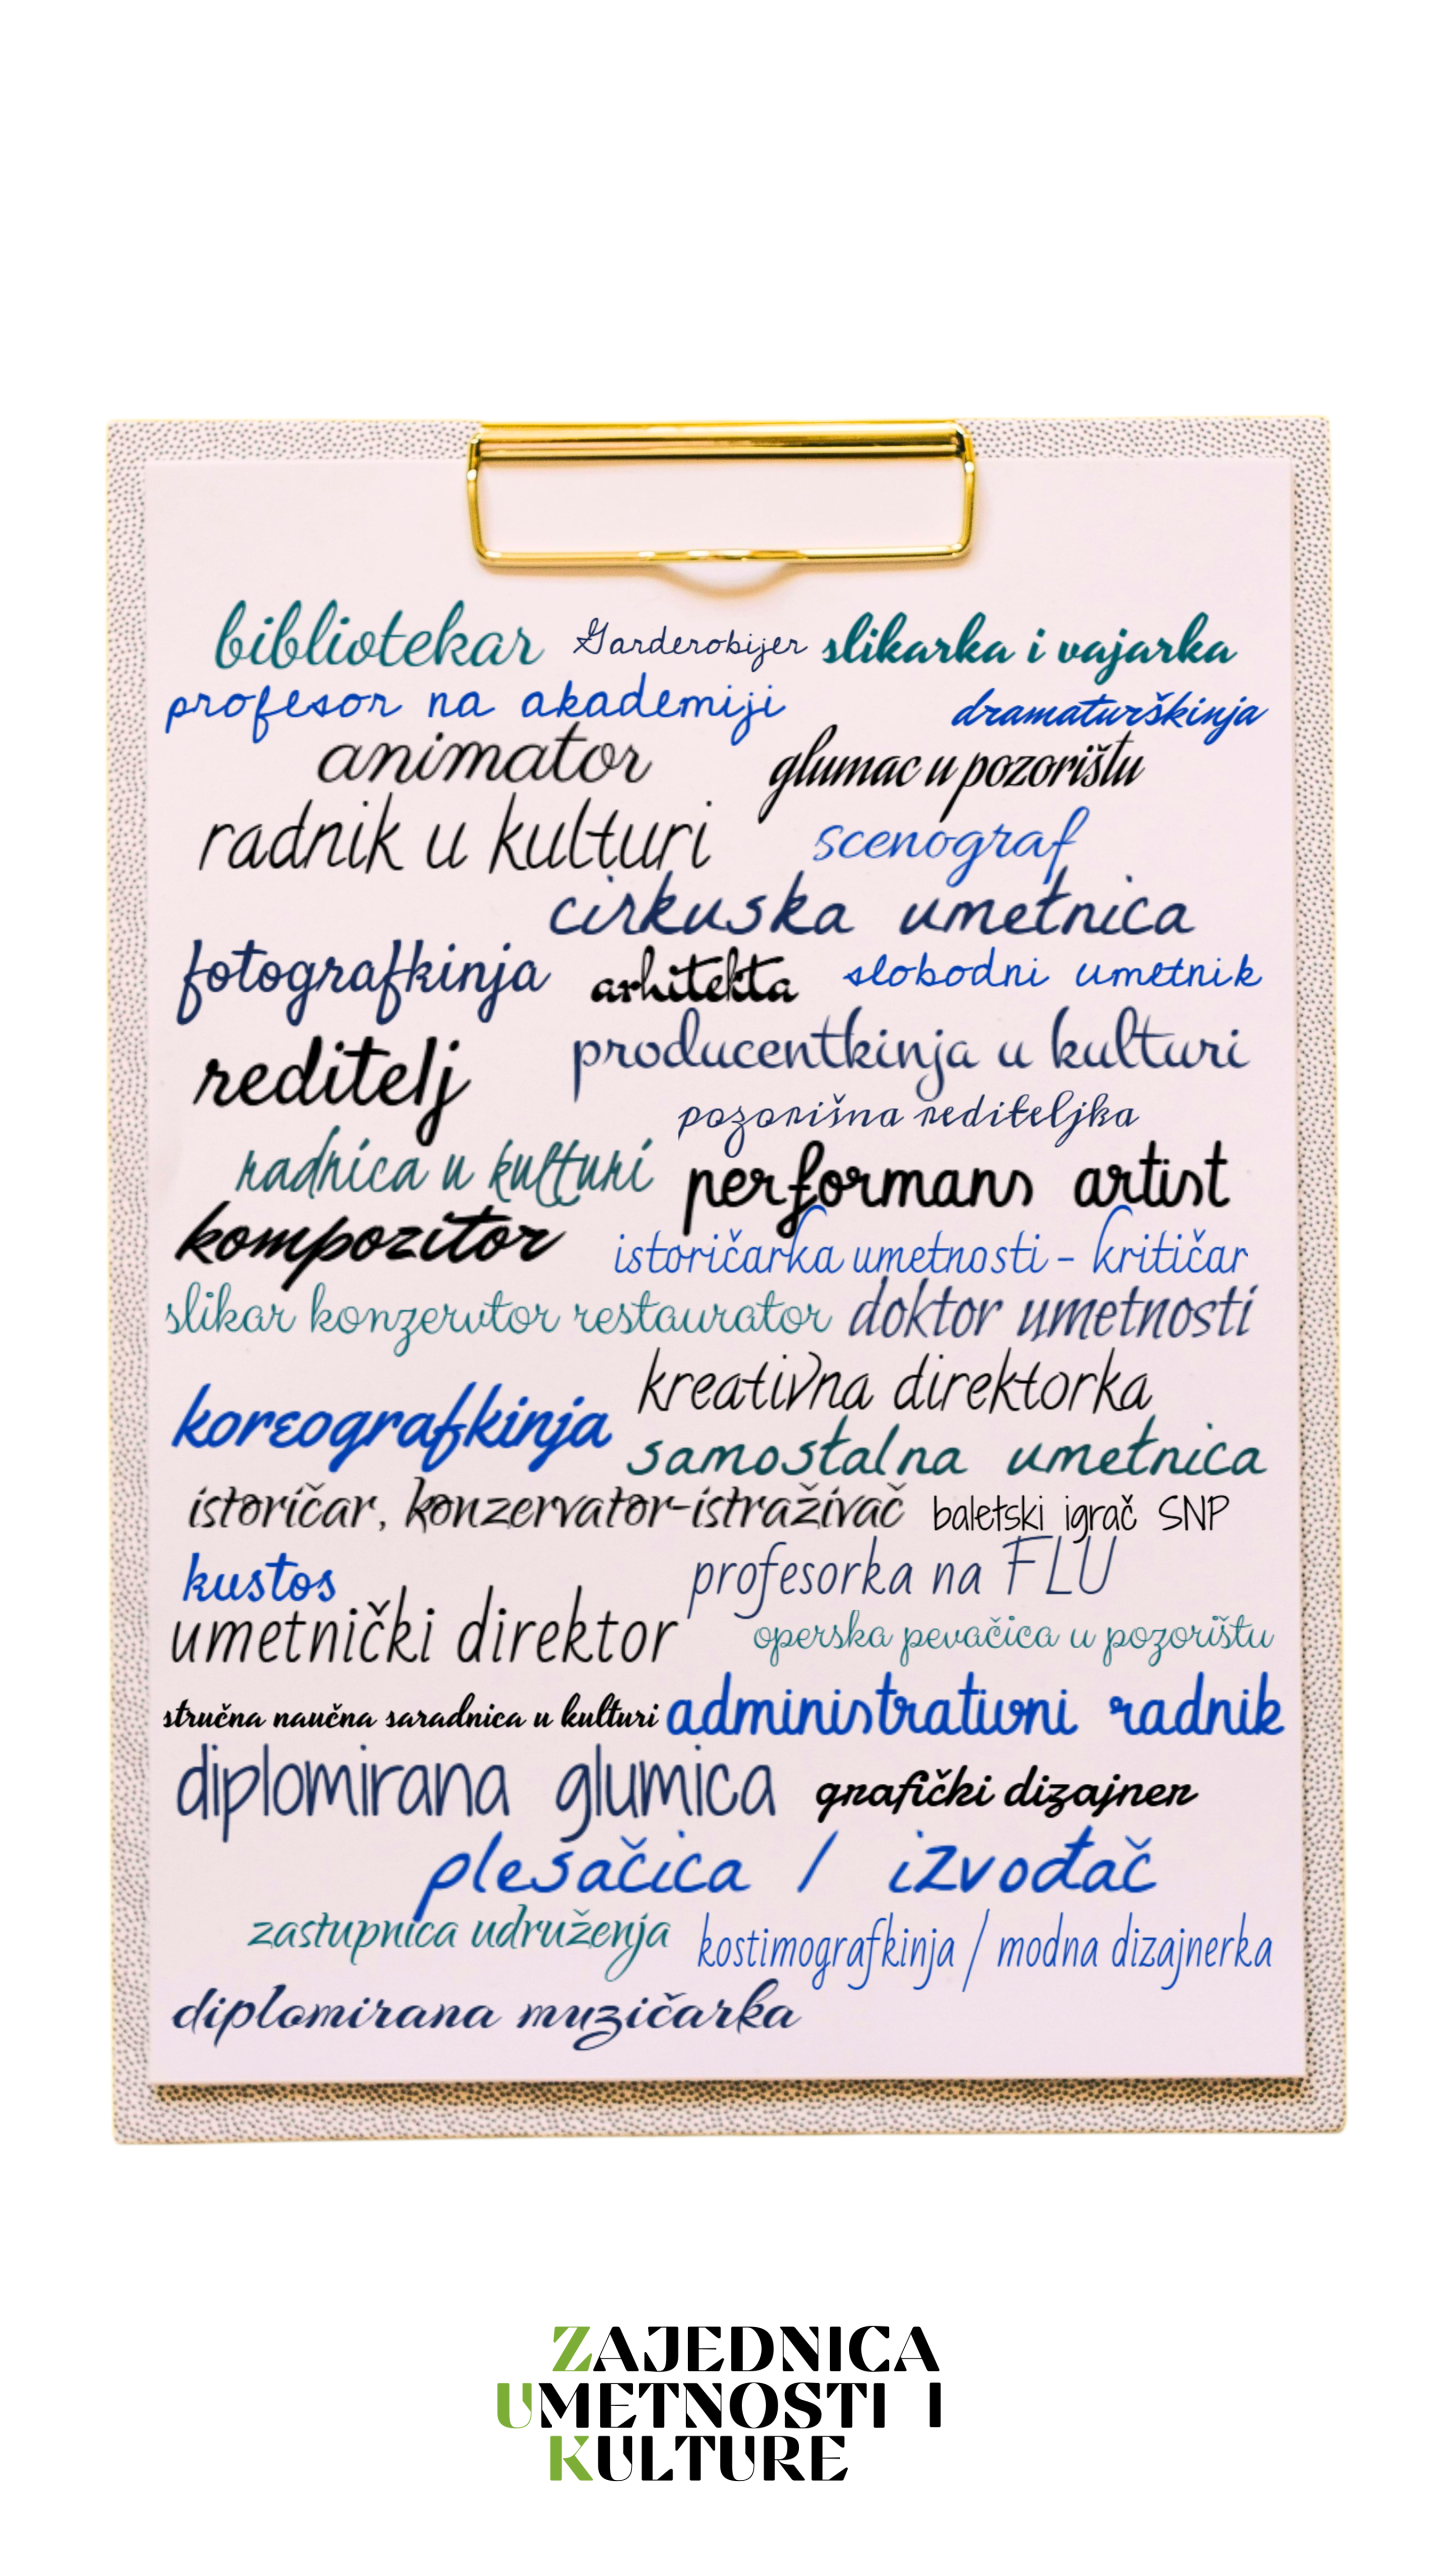 bibliotekar Garderobijer slikarka i vajarka
profesor na akademiji dramaturškinja
animator glumac u pozorištu
radnik u kulturi scenograf
cirkuska umetnica
fotografkinja arhitekta slobodni umetnik
reditelj producentkinja u kulturi
pozorišna rediteljka
radnica u kulturi performans artist
kompozitor istoričarka umetnosti - kritičar
slikar konzervtor restaurator doktor umetnosti
kreativna direktorka
koreografkinja samostalna umetnica
istoričar, konzervator-istraživač baletski igrač SNP
kustos profesorka na FLU
umetnički direktor operska pevačica u pozorištu
stručna naučna saradnica u kulturi administrativni radnik
diplomirana glumica grafički dizajner
plesačica / izvođač
zastupnica udruženja kostimografkinja / modna dizajnerka
diplomirana muzičarka
ZAJEDNICA
UMETNOSTI I
KULTURE